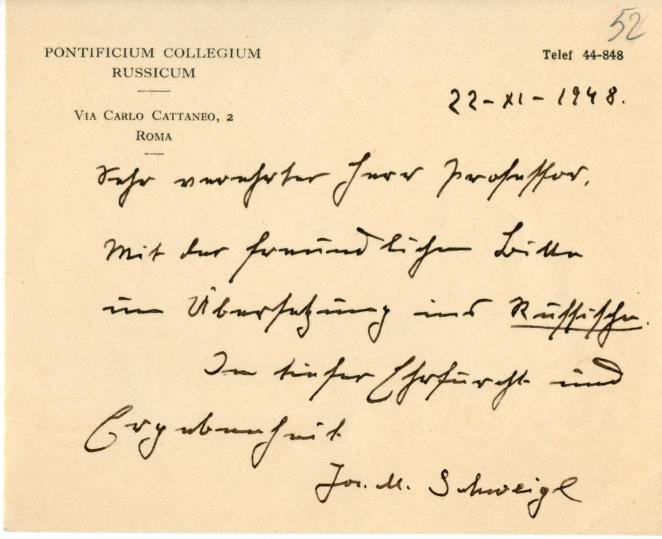 52
PONTIFICIUM COLLEGIUM
RUSSICUM
Telef 44-848
VIA CARLO CATTANEO, 2
ROMA
22-XI-1948.
Sehr verehrter Herr Professor,
Mit der freundlichen Bitte
um Übersetzung ins Russische.
In tiefer Ehrfurcht und
Ergebenheit
Jos. M. Schweigl